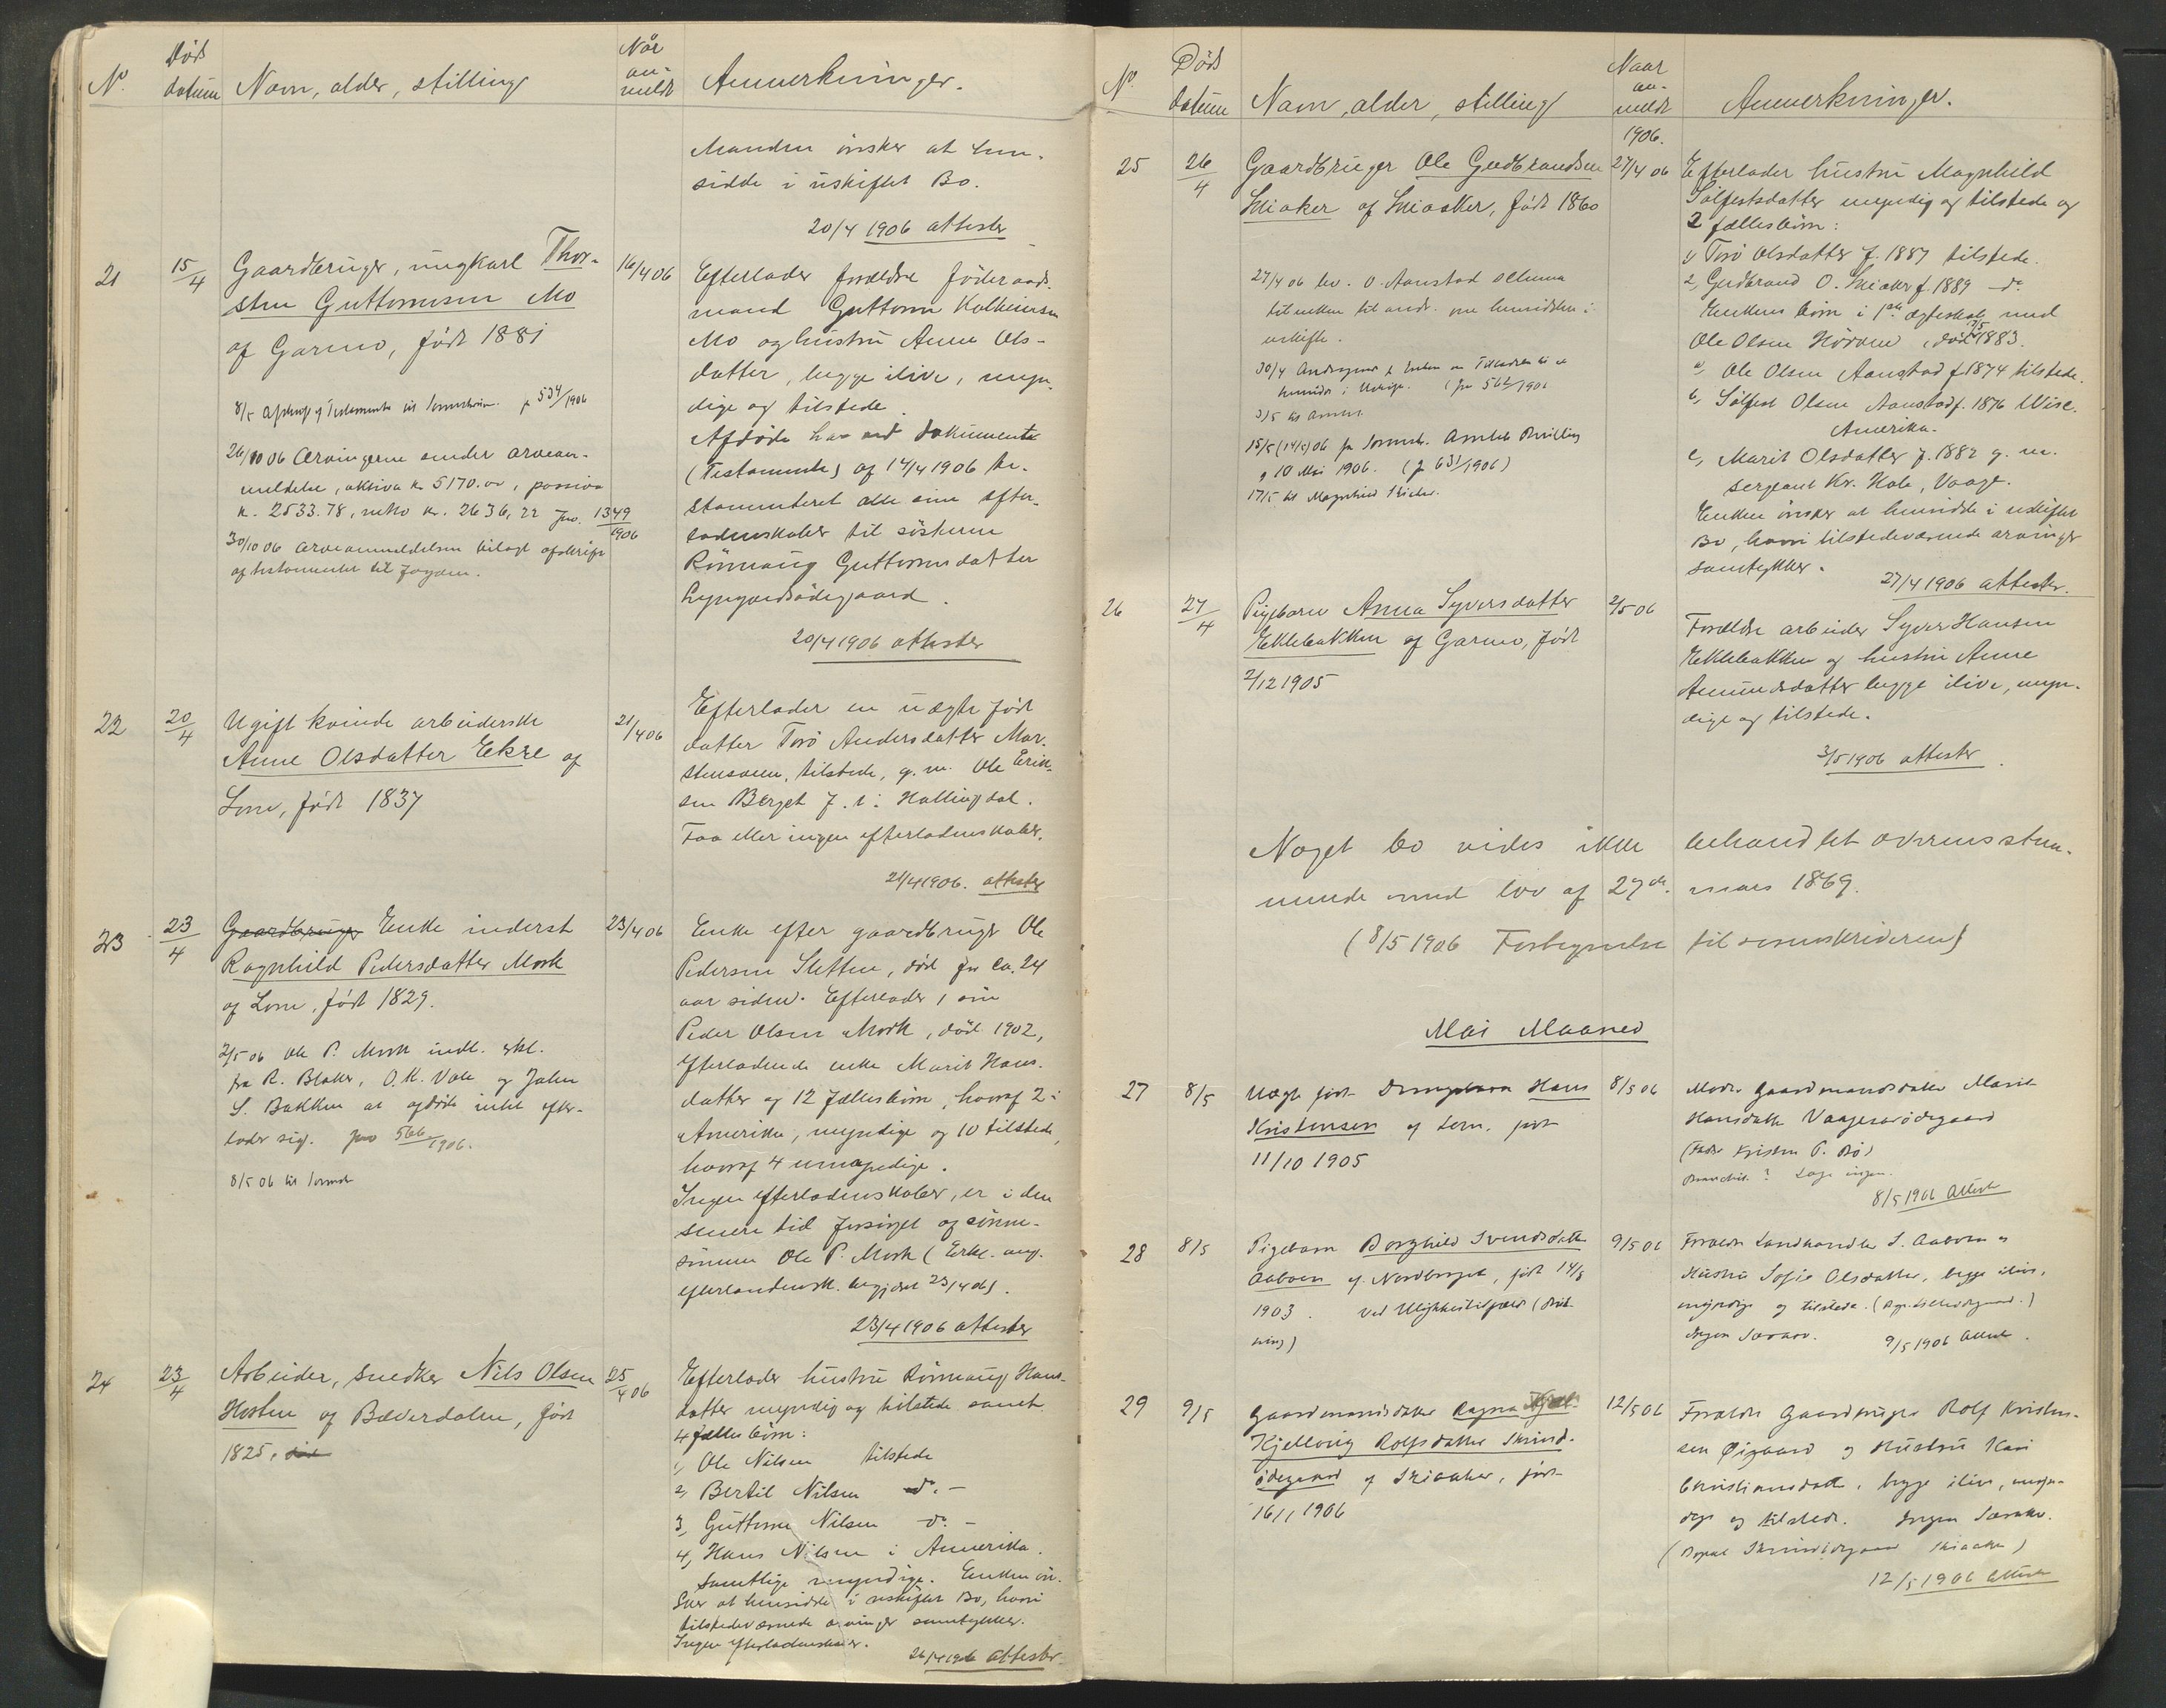 No.
Døds datum
Navn, alder, stilling
Når an-meldt
Anmerkninger.
Manden ønsker at hen-
sidde i uskiftet Bo.
20/4 1906 attester
21
15/4
Gaardbruger, ungkarl Thor-
sten Guttormsen Mo
af Garmo, født 1881
8/5 Afskrift af Testamente til sorenskriveren. j 534/1906
26/10 06 Arvingerne sender arvean-
meldelse, aktiva kr. 5170.00, passiva
kr. 2533.78, netto kr. 2636,22 jno. 1349/1906
30/10 06 arveanmeldelsen bilagt afskrift
af testamentet til fogden.
16/4 06
Efterlader forældre föderaads-
mand Guttorm Kolbeinsen
Mo og hustru Anne Ols-
datter, begge ilive, myn-
dige og tilstede.
Afdöde har ved dokument
(Testamente) af 14/4 1906 te-
stamenteret alle sine efter-
ladenskaber til sösteren
Rönnaug Guttormsdatter
20/4 1906 attester
22
20/4
Ugift kvinde arbeiderske
Anne Olsdatter Ekre af
Lom, født 1837
21/4 06
Efterlader en uægte født
datter Torö Andersdatter Mar-
stensveen, tilstede, g. m. Ole Erik-
sen Berget f. t. i Hallingdal.
Faa eller ingen efterladenskaber.
21/4 1906. attester
23
23/4
Gaardbruger Enke inderst
Ragnhild Pedersdatter Mork
af Lom, født 1829.
2/5 06 Ole P. Mork indl. erkl.
fra R. Blaker, O. K. Vole og Johan
S. Bakken at afdöde intet efter-
lader sig. jno 566/1906.
8/5 06 til sorenskr
23/4 06
Enke efter gaardbruger Ole
Pedersen Sletten, död for ca. 24
aar siden. Efterlader 1 sön
Peder Olsen Mork, död 1902,
efterladende enke Marit Hans-
datter og 12 fællesbörn, hvoraf 2 i
Amerika, myndige og 10 tilstede,
hvoraf 4 umyndige.
Ingen efterladenskaber, er i den
senere tid forsörget af sönne-
sönnen Ole P. Mork (Erkl. ang.
efterladensk. begjært 23/4 06).
23/4 1906 attester
24
23/4
Arbeider, snedker Nils Olsen
Hosten af Bæverdalen, født
1825.
25/4 06
Efterlader hustru Rönnaug Hans-
datter myndig og tilstede samt
4 fællesbörn:
1, Ole Nilsen tilstede
2, Bertil Nilsen do. -
3, Guttorm Nilsen do. -
4, Hans Nilsen i Amerika.
Samtlige myndige. Enken ön-
sker at hensidde i uskiftet Bo, hvori
tilstedeværende arvinger samtykker.
Ingen efterladenskaber.
26/4 1906 attester
No.
Döds datum
Navn, alder, stilling
Naar an-meldt
Anmerkninger.
1906.
25
26/4
Gaardbruger Ole Gudbrandsen
Skiaker af Skiaker, født 1860
27/4 06 lev. O. Aanstad schema
til enken til andr. om hensidden i
uskifte.
30/4 Andragende fr Enken om Tilladelse til at
hensidde i Uskifte. (jno 562/1906
3/5 til Amtet.
15/5 (14/5) 06 fra sorenskr. Amtets Bevilling
af 10 Mai 1906. (j 631/1906)
17/5 til Magnhild Skiaker.
27/4 06
Efterlader hustru Magnhild
Sölfestsdatter myndig og tilstede og
2 fællesbörn:
1, Torö Olsdatter f. 1887 tilstede.
2, Gudbrand O. Skiaker f. 1889 -do
Enkens börn i 1ste ægteskab med
Ole Olsen Hörven, död 1883.
a, Ole Olsen Aanstad f. 1874 tilstede.
b, Sölfest Olsen Aanstad f. 1876 Wisc.
Amerika.
c, Marit Olsdatter f. 1882 g. m.
sergeant Kr. Hole, Vaage.
Enken önsker at hensidde i uskiftet
Bo, hvori tilstedeværende arvinger
samtykker.
27/4 1906 attester.
26
27/4
Pigebarn Anna Syversdatter
Eklebakken af Garmo, født
2/12 1905
2/5 06
Forældre arbeider Syver Hansen
Eklebakken og hustru Anne
Amundsdatter begge ilive, myn-
dige og tilstede.
3/5 1906 attester.
Noget bo vides ikke behandlet overensstem-
mende med lov af 27de mars 1869.
(8/5 1906 Fortegnelse til sorenskriveren)
Mai Maaned
27
8/5
Uægte født Drengebarn Hans
Kristensen af Lom, født
11/10 1905
8/5 06
Moder gaardmandsdatter Marit
Hansdatter
(Fader Kristen P. Bö)
8/5 1906 Attest
28
8/5
Pigebarn Borghild Svendsdatter
Aaboen af Nordberget, født 14/8
1903. Ved Ulykkestilfælde (
ning)
9/5 06
Forældre Landhandler S. Aaboen og
Hustru Sofie Olsdatter, begge ilive,
myndige og tilstede.
Ingen Særarv. 9/5 1906 Attest.
29
9/5
Gaardmandsdatter Ragna
Kjellaug Rolfsdatter Skrind-
ödegaard af Skiaker, født
16/1 1906
12/5 06
Forældre Gaardbruger Rolf Kristen-
sen Öigaard og Hustru Kari
Christiansdatter, begge ilive, myn-
dige og tilstede. Ingen Særarv.
(Bopæl Skrindödegaard Skiaker)
12/5 1906 Attest